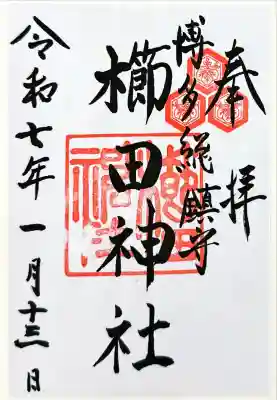 奉拝
博多総鎮守
櫛田神社
令和七年一月十三日